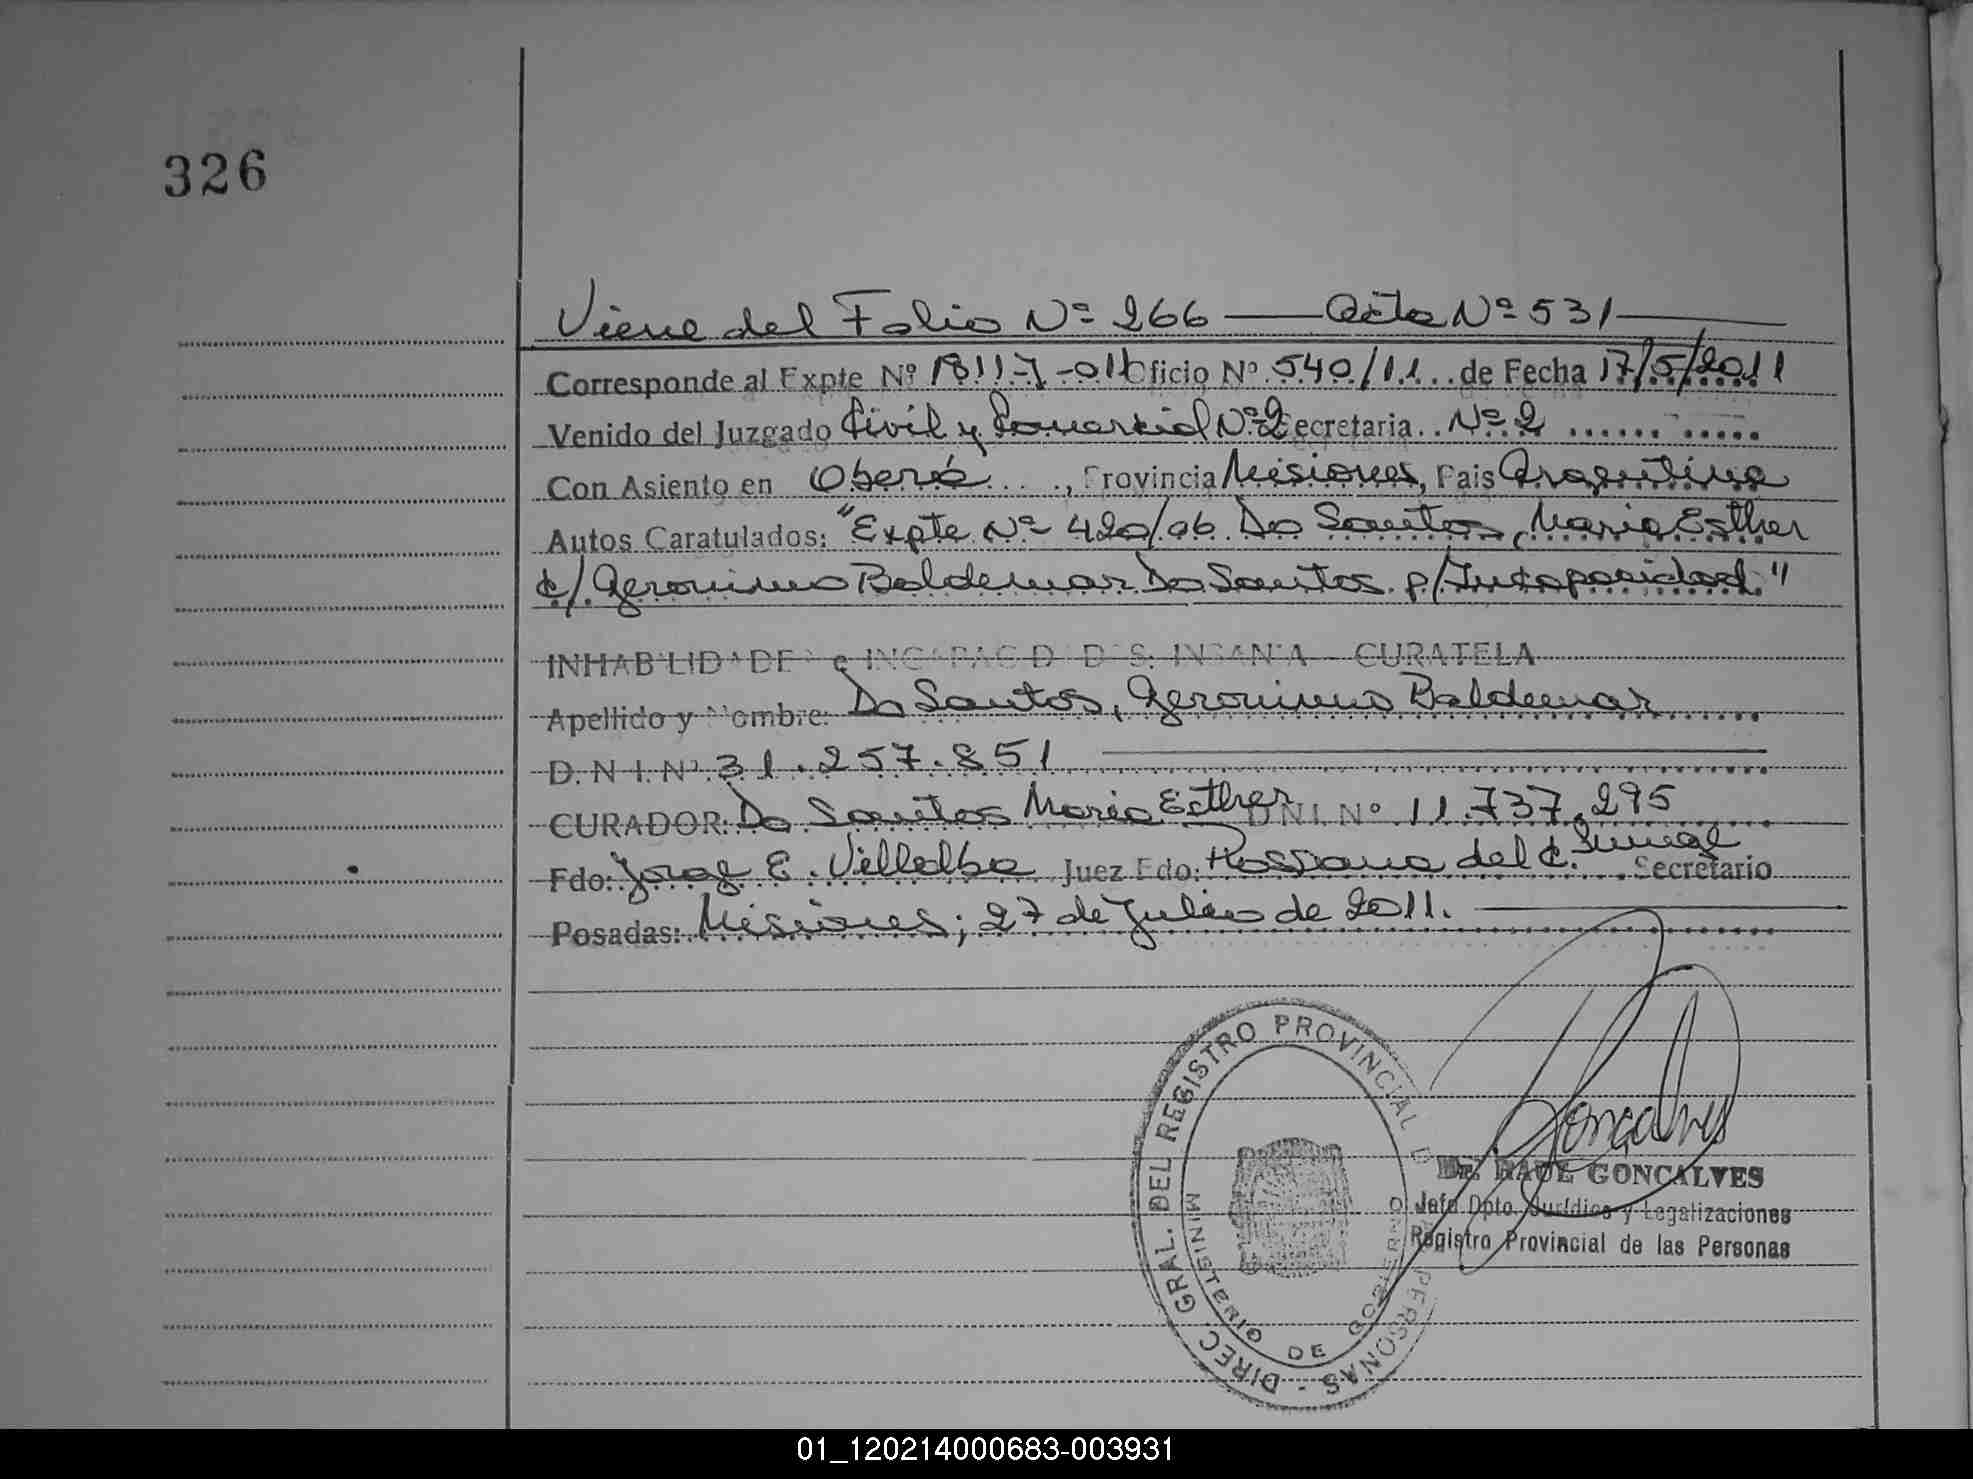 326
Viene del Folio Nº 266 — Acta Nº 531
Corresponde al Expte Nº 18117-011 Oficio Nº 540/11 de Fecha 17/5/2011
Venido del Juzgado Civil y Comercial Nº 2 Secretaria Nº 2
Con Asiento en Oberá, Provincia Misiones, Pais Argentina
Autos Caratulados: "Expte Nº 420/06 Do Santos, Maria Esther
c/ Geronimo Baldemar Do Santos p/
INHABILIDADES e INCAPACIDADES. INSANIA - CURATELA
Apellido y Nombre: Do Santos, Geronimo Baldemar
D.N.I. Nº 31.257.851
CURADOR: Do Santos Maria Esther DNI. Nº 11.737.295
Fdo: Jorge E. Villalba Juez Fdo: Rossana del C. Secretario
Posadas: Misiones; 27 de Julio de 2011.
DIREC. GRAL. DEL REGISTRO PROVINCIAL PERSONAS -
MINISTERIO DE GOBIERNO
Goncalves
Dr. RAUL GONCALVES
Jefe Dpto. Jurídico y Legalizaciones
Registro Provincial de las Personas
01_120214000683-003931